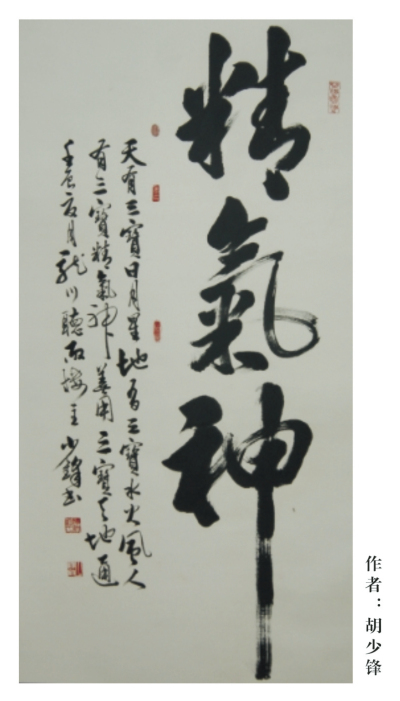 精氣神
天有三寶日月星地有三寶水火風人
有三寶精氣神善用三寶天地通
壬辰夏月龍川聽雨樓主少鋒書
作者：胡少锋